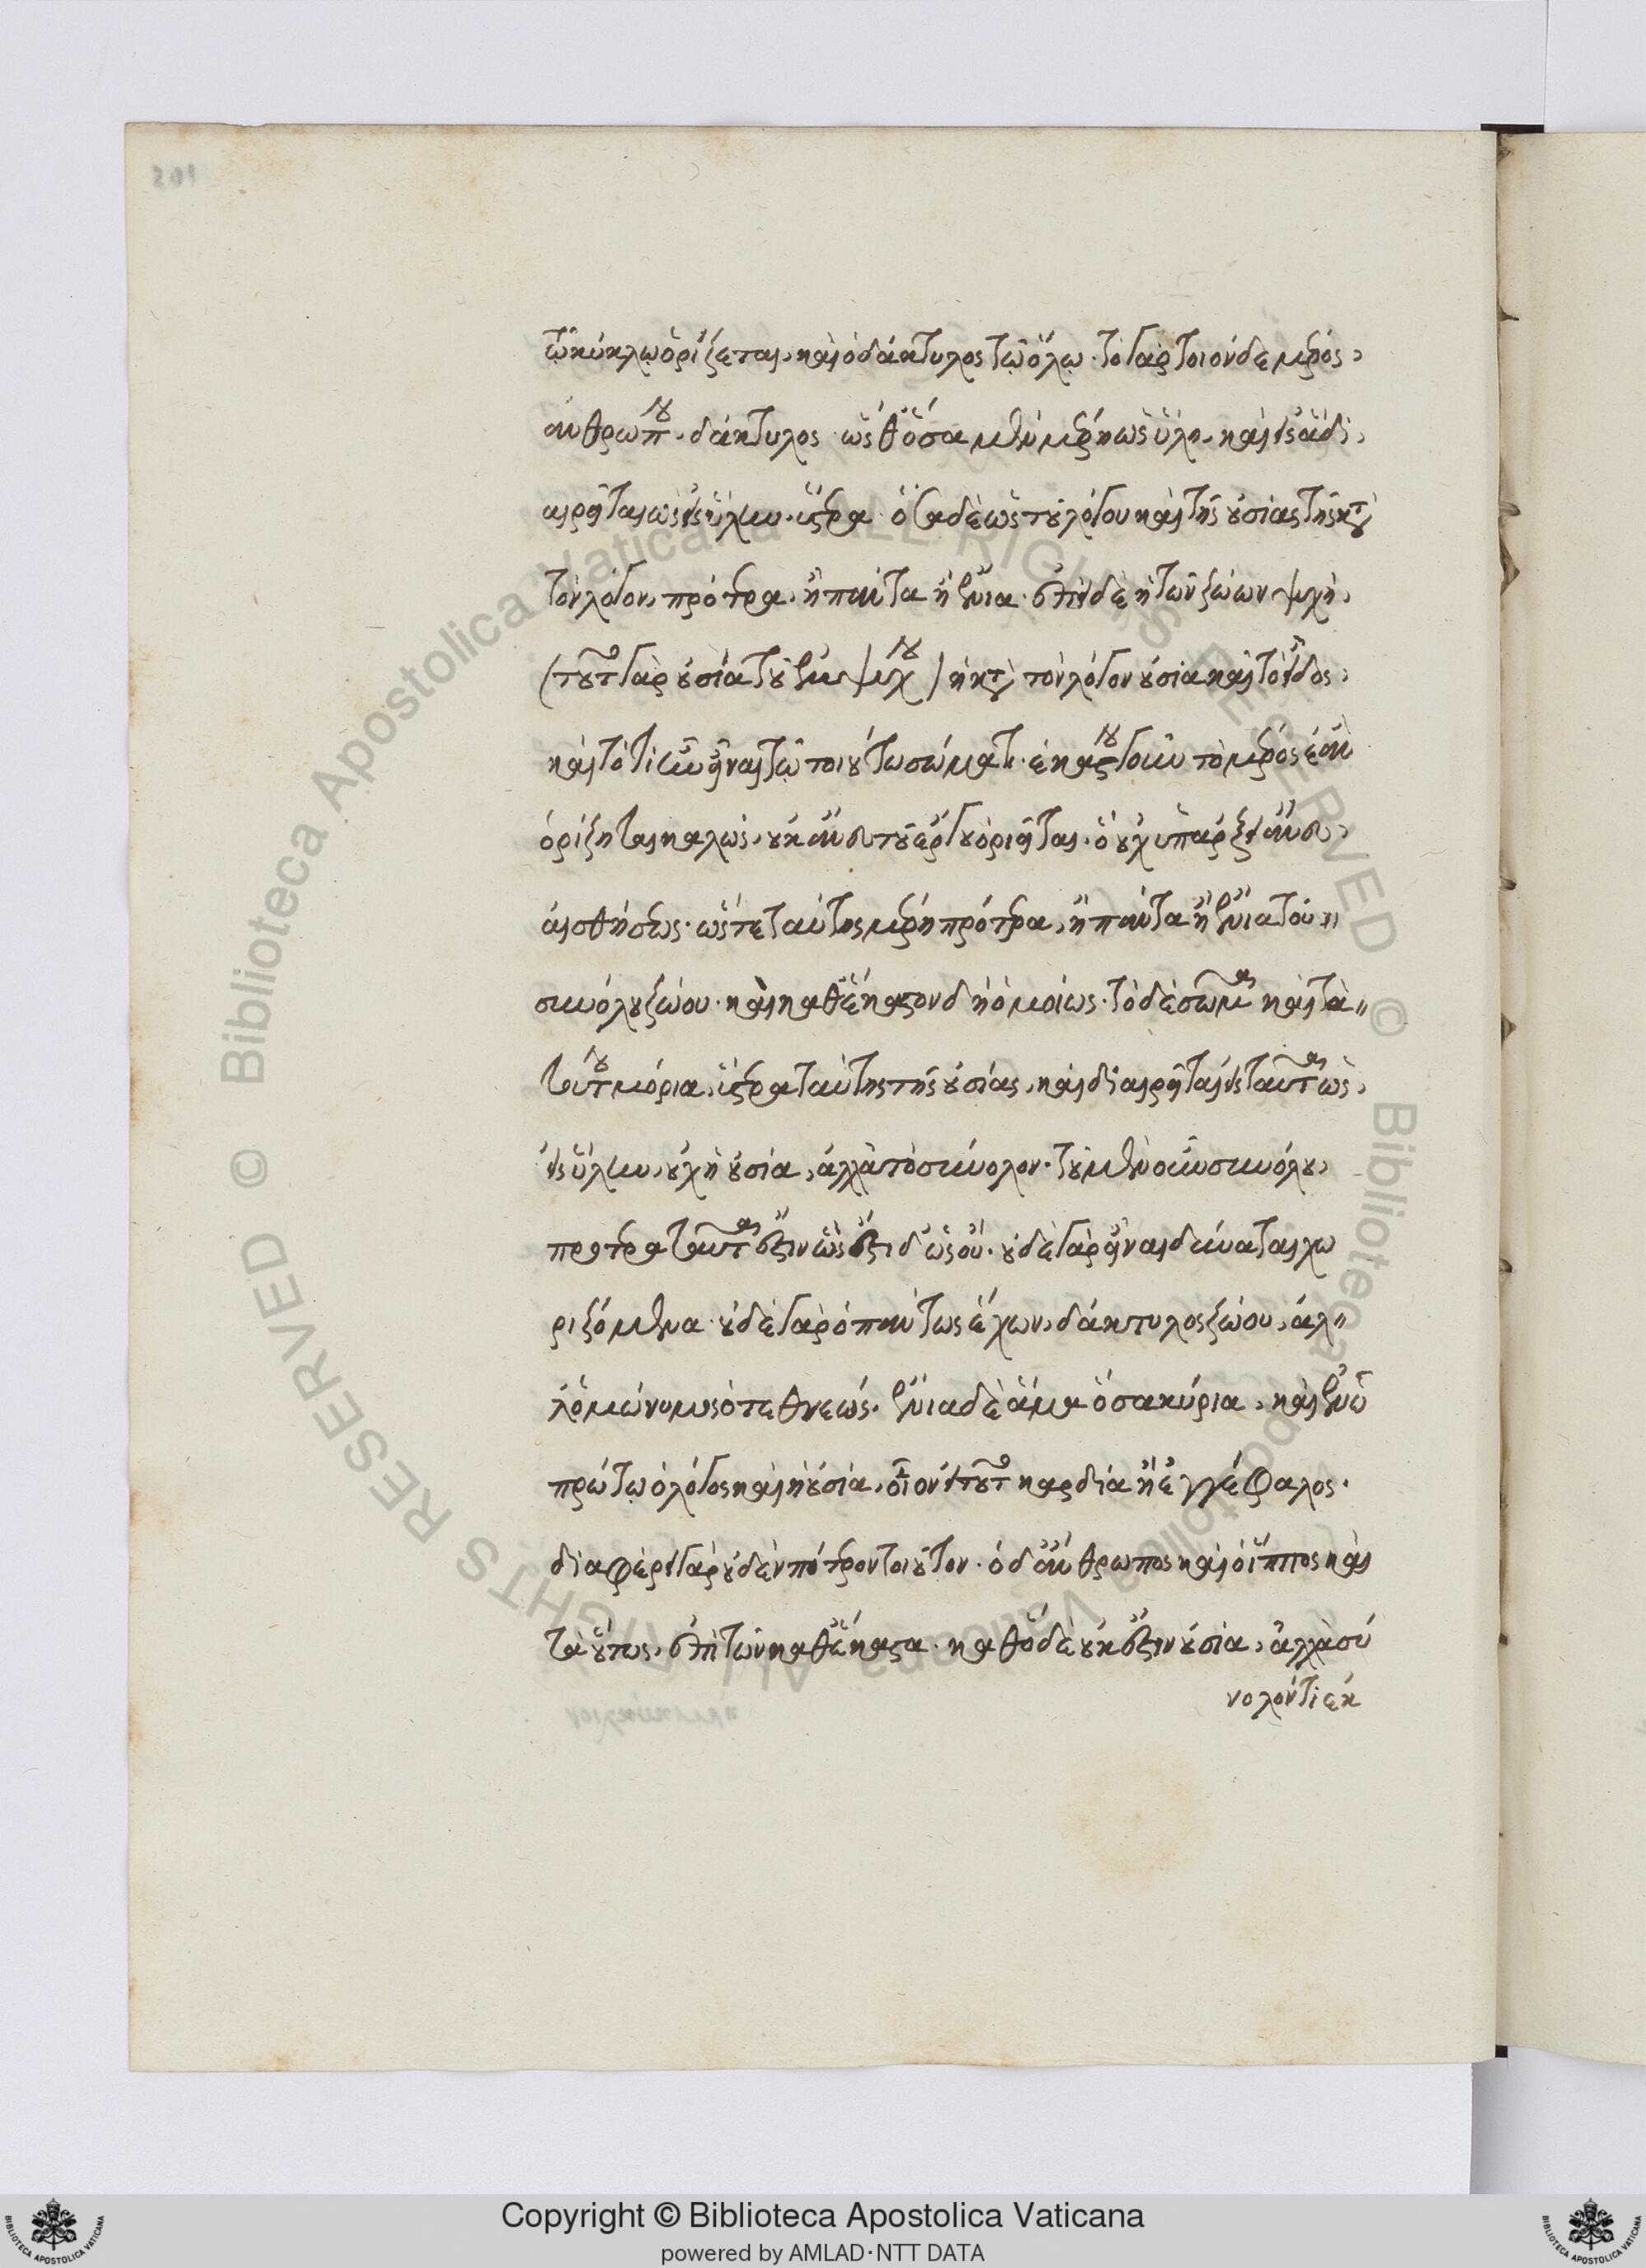 201
τῷ κύκλῳ ὁρίζεται, καὶ ὁ δάκτυλος τῷ ὅλῳ. τὸ γὰρ τοιόνδε μέρος,
ἀνθρώπου, δάκτυλος. ὥσθ' ὅσα μὲν μέρη ὡς ὕλη, καὶ εἰς ἃ δι,
αιρεῖται ὡς εἰς ὕλην, ὕστερα. ὅσα δὲ ὡς τοῦ λόγου καὶ τῆς οὐσίας τῆς κατὰ
τὸν λόγον, πρότερα, ἢ πάντα ἢ ἔνια. ἐπεὶ δὲ ἡ τῶν ζώων ψυχὴ,
(τοῦτο γὰρ οὐσία τοῦ ἐμψύχου) ἡ κατὰ τὸν λόγον οὐσία καὶ τὸ εἶδος,
καὶ τὸ τί ἦν εἶναι τῷ τοιούτω σώματι. ἑκάστου γοῦν τὸ μέρος ἐὰν
ὁρίζηται καλῶς, οὐκ ἄνευ τοῦ ἔργου ὁριεῖται, ὃ οὐχ ὑπάρξει ἄνευ,
αἰσθήσεως. ὥστε τὰ ταύτης μέρη πρότερα, ἢ πάντα ἢ ἔνια τοῦ,,
συνόλου ζώου. καὶ καθ' ἕκαστον δὴ ὁμοίως. τὸ δὲ σῶμα καὶ τὰ,,
τούτου μόρια, ὕστερα ταύτης τῆς οὐσίας, καὶ διαιρεῖται εἰς ταῦτα ὡς,
εἰς ὕλην, οὐχ ἡ οὐσία, ἀλλὰ τὸ σύνολον. τοῦ μὲν οὖν συνόλου,
πρότερα ταῦτα ἔστιν ὡς ἔστι δ' ὡς οὔ. οὐδὲ γὰρ εἶναι δύναται χω
ριζόμενα. οὐδὲ γὰρ ὁ πάντως ἔχων, δάκτυλος ζώου, ἀλ,,
λ' ὁμώνυμος ὁ τεθνεώς. ἔνια δὲ ἅμα ὅσα κύρια, καὶ ἐν ᾧ
πρώτῳ ὁ λόγος καὶ ἡ οὐσία, οἷον εἰ τοῦτο καρδία ἢ ἐγγέφαλος.
διαφέρει γὰρ οὐδὲν πότερον τοιοῦτον. ὁ δ' ἄνθρωπος καὶ ὁ ἵππος καὶ
τὰ οὕτως, ἐπὶ τῶν καθ' ἕκαστα. καθόλου δὲ οὐκ ἔστιν οὐσία, ἀλλὰ σύ
νολόν τι ἐκ
Copyright © Biblioteca Apostolica Vaticana
powered by AMLAD·NTT DATA